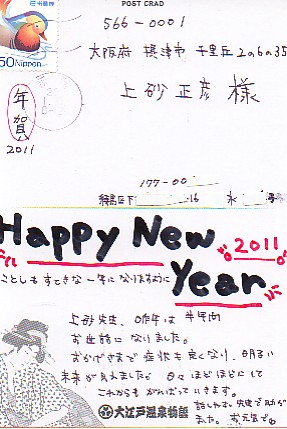 POST CRAD
日本郵便
50 Nippon
566-0001
大阪府 摂津市 千里丘2の6の35
上砂 正彦 様
年賀
2011
177-00
練馬区下
16
Happy New
Year
2011
ことしも すてきな 一年に なりますように
上砂先生、昨年は
お世話に なりました。
おかげさまで 症状も 良くなり、明るい
未来が 見えました。 日々 ほどほどにして
これからも がんばって いきます。
大江戸温泉物語
お元気で。